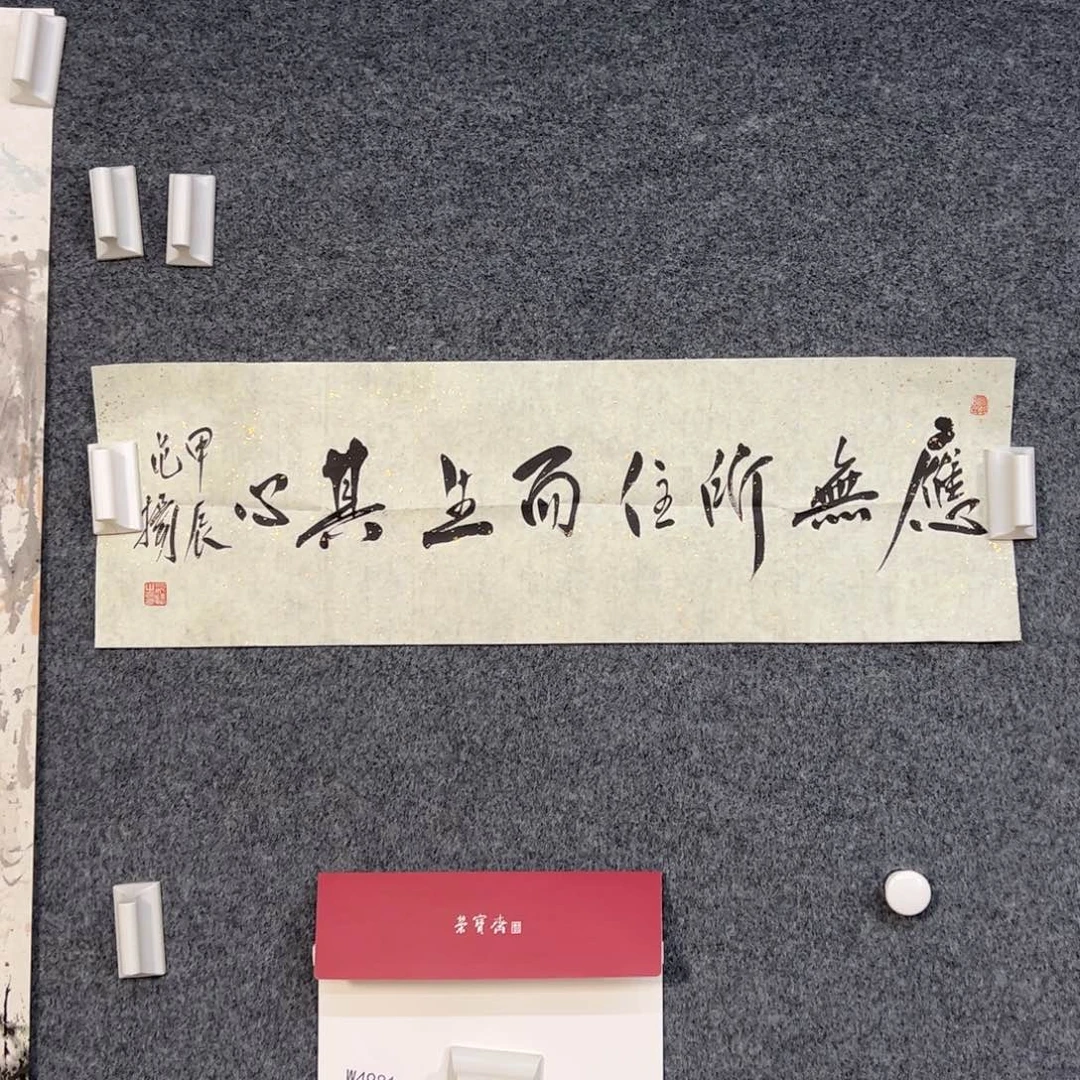 應無所住而生其心
甲辰
范
榮寶齋